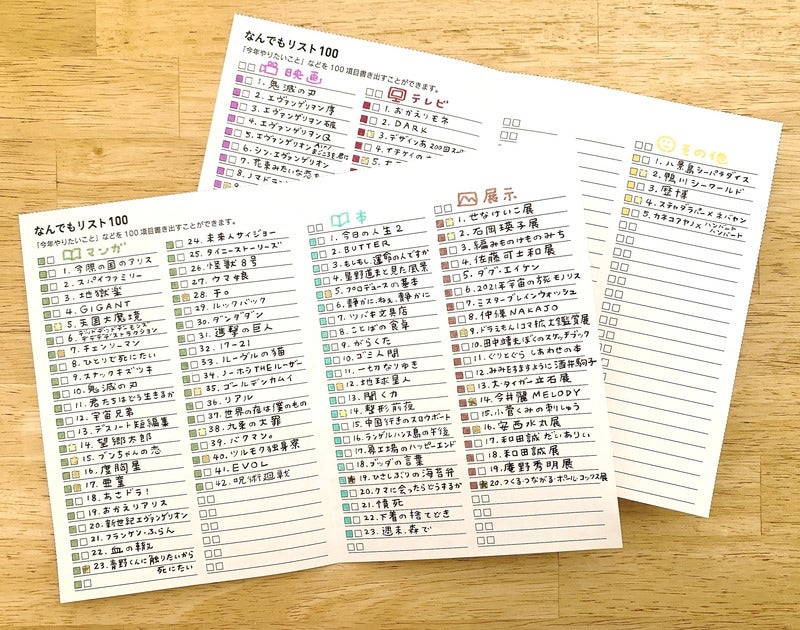 なんでもリスト100
「今年やりたいこと」などを100項目書き出すことができます。
映画
1. 鬼滅の刃
2. エヴァンゲリオン序
3. エヴァンゲリオン破
4. エヴァンゲリオンQ
5. シン・エヴァンゲリオン
7. 花束みたいな恋
テレビ
1. おかえりモネ
2. DARK
3. デザインあ 200回スペ
4. イチケイの
5.
その他
1. 八景島シーパラダイス
2. 鴨川シーワールド
3. 歴博
4. スチャダラパー×ネバヤン
5. カネコアヤノ×ハンバートハンバート
なんでもリスト100
「今年やりたいこと」などを100項目書き出すことができます。
マンガ
1. 今際の国のアリス
2. スパイファミリー
3. 地獄楽
4. GIGANT
5. 天国大魔境
6. デッドデッドデーモンズデデデデデストラクション
7. チェンソーマン
8. ひとりで死にたい
9. スナックキズツキ
10. 鬼滅の刃
11. 君たちはどう生きるか
12. 宇宙兄弟
13. デスノート短編集
14. 望郷太郎
15. ブンちゃんの恋
16. 度胸星
17. 亜童
18. あさドラ!
19. おかえりアリス
20. 新世紀エヴァンゲリオン
21. フランケン・ふらん
22. 血の轍
23. 青野くんに触りたいから死にたい
24. 未来人サイジョー
25. タイニーストーリーズ
26. 怪獣8号
27. ウマ娘
28. チ。
29. ルックバック
30. ダンダダン
31. 進撃の巨人
32. 17-21
33. ルーヴルの猫
34. ノーホシTHEルーザー
35. ゴールデンカムイ
36. リアル
37. 世界の夜は僕のもの
38. 九条の大罪
39. バクマン。
40. ツルモク独身寮
41. EVOL
42. 呪術廻戦
本
1. 今日の人生2
2. BUTTER
3. もしもし、運命の人ですか
4. 星野道夫と見た風景
5. プロデュースの基本
6. 静かに、ねぇ、静かに
7. ツバキ文具店
8. ことばの食卓
9. がらくた
10. ゴミ人間
11. 一切なりゆき
12. 地球星人
13. 聞く力
14. 整形前夜
15. 中国行きのスロウボート
16. ランゲルハンス島の午後
17. 昇工場のハッピーエンド
18. ブッダの言葉
19. ひさしぶりの海苔弁
20. クマに会ったらどうするか
21. 憤死
22. 下着の捨てどき
23. 週末、森で
展示
1. せなけいこ展
2. 石岡瑛子展
3. 編みものけものみち
4. 佐藤可士和展
5. ダグ・エイケン
6. 2021年宇宙の旅 モノリス
7. ミスターブレインウォッシュ
8. 仲條 NAKAJO
9. ドラえもん1コマ拡大鑑賞展
10. 田中靖夫 ぼくのスケッチブック
11. ぐりとぐら しあわせの本
12. みみをすますように 酒井駒子
13. 大・タイガー立石展
14. 今井麗 MELODY
15. 小菅くみの刺しゅう
16. 安西水丸展
17. 和田誠 だいありぃ
18. 和田誠展
19. 庵野秀明展
20. つくる・つながる・ポール・コックス展